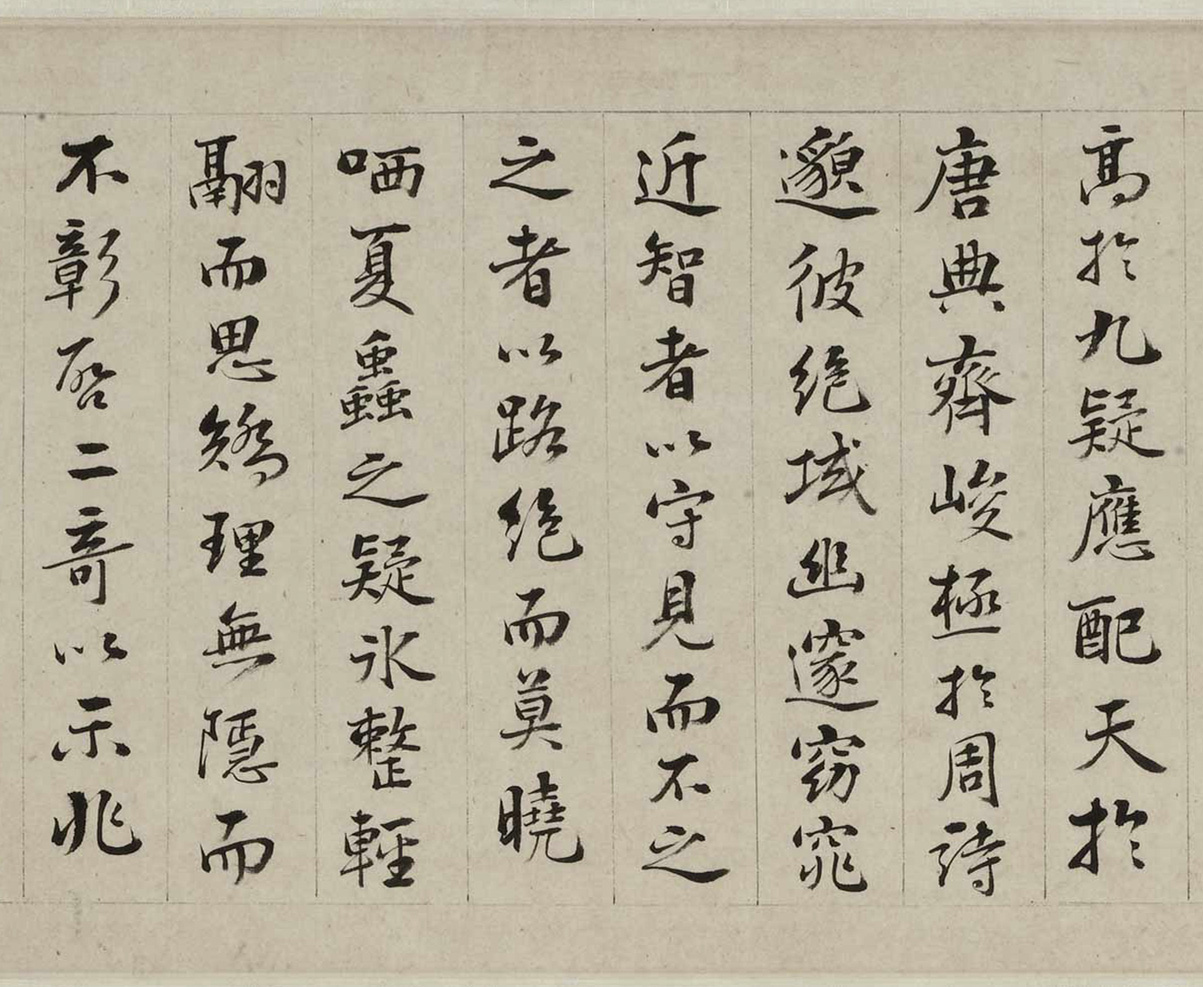 髙扵九疑應配天扵
唐典齊峻極扵周詩
邈彼絶域幽邃窈窕
近智者以守見而不之
之者以路絶而莫曉
哂夏蟲之疑氷整輕
翮而思矯理無隱而
不彰启二竒以示兆